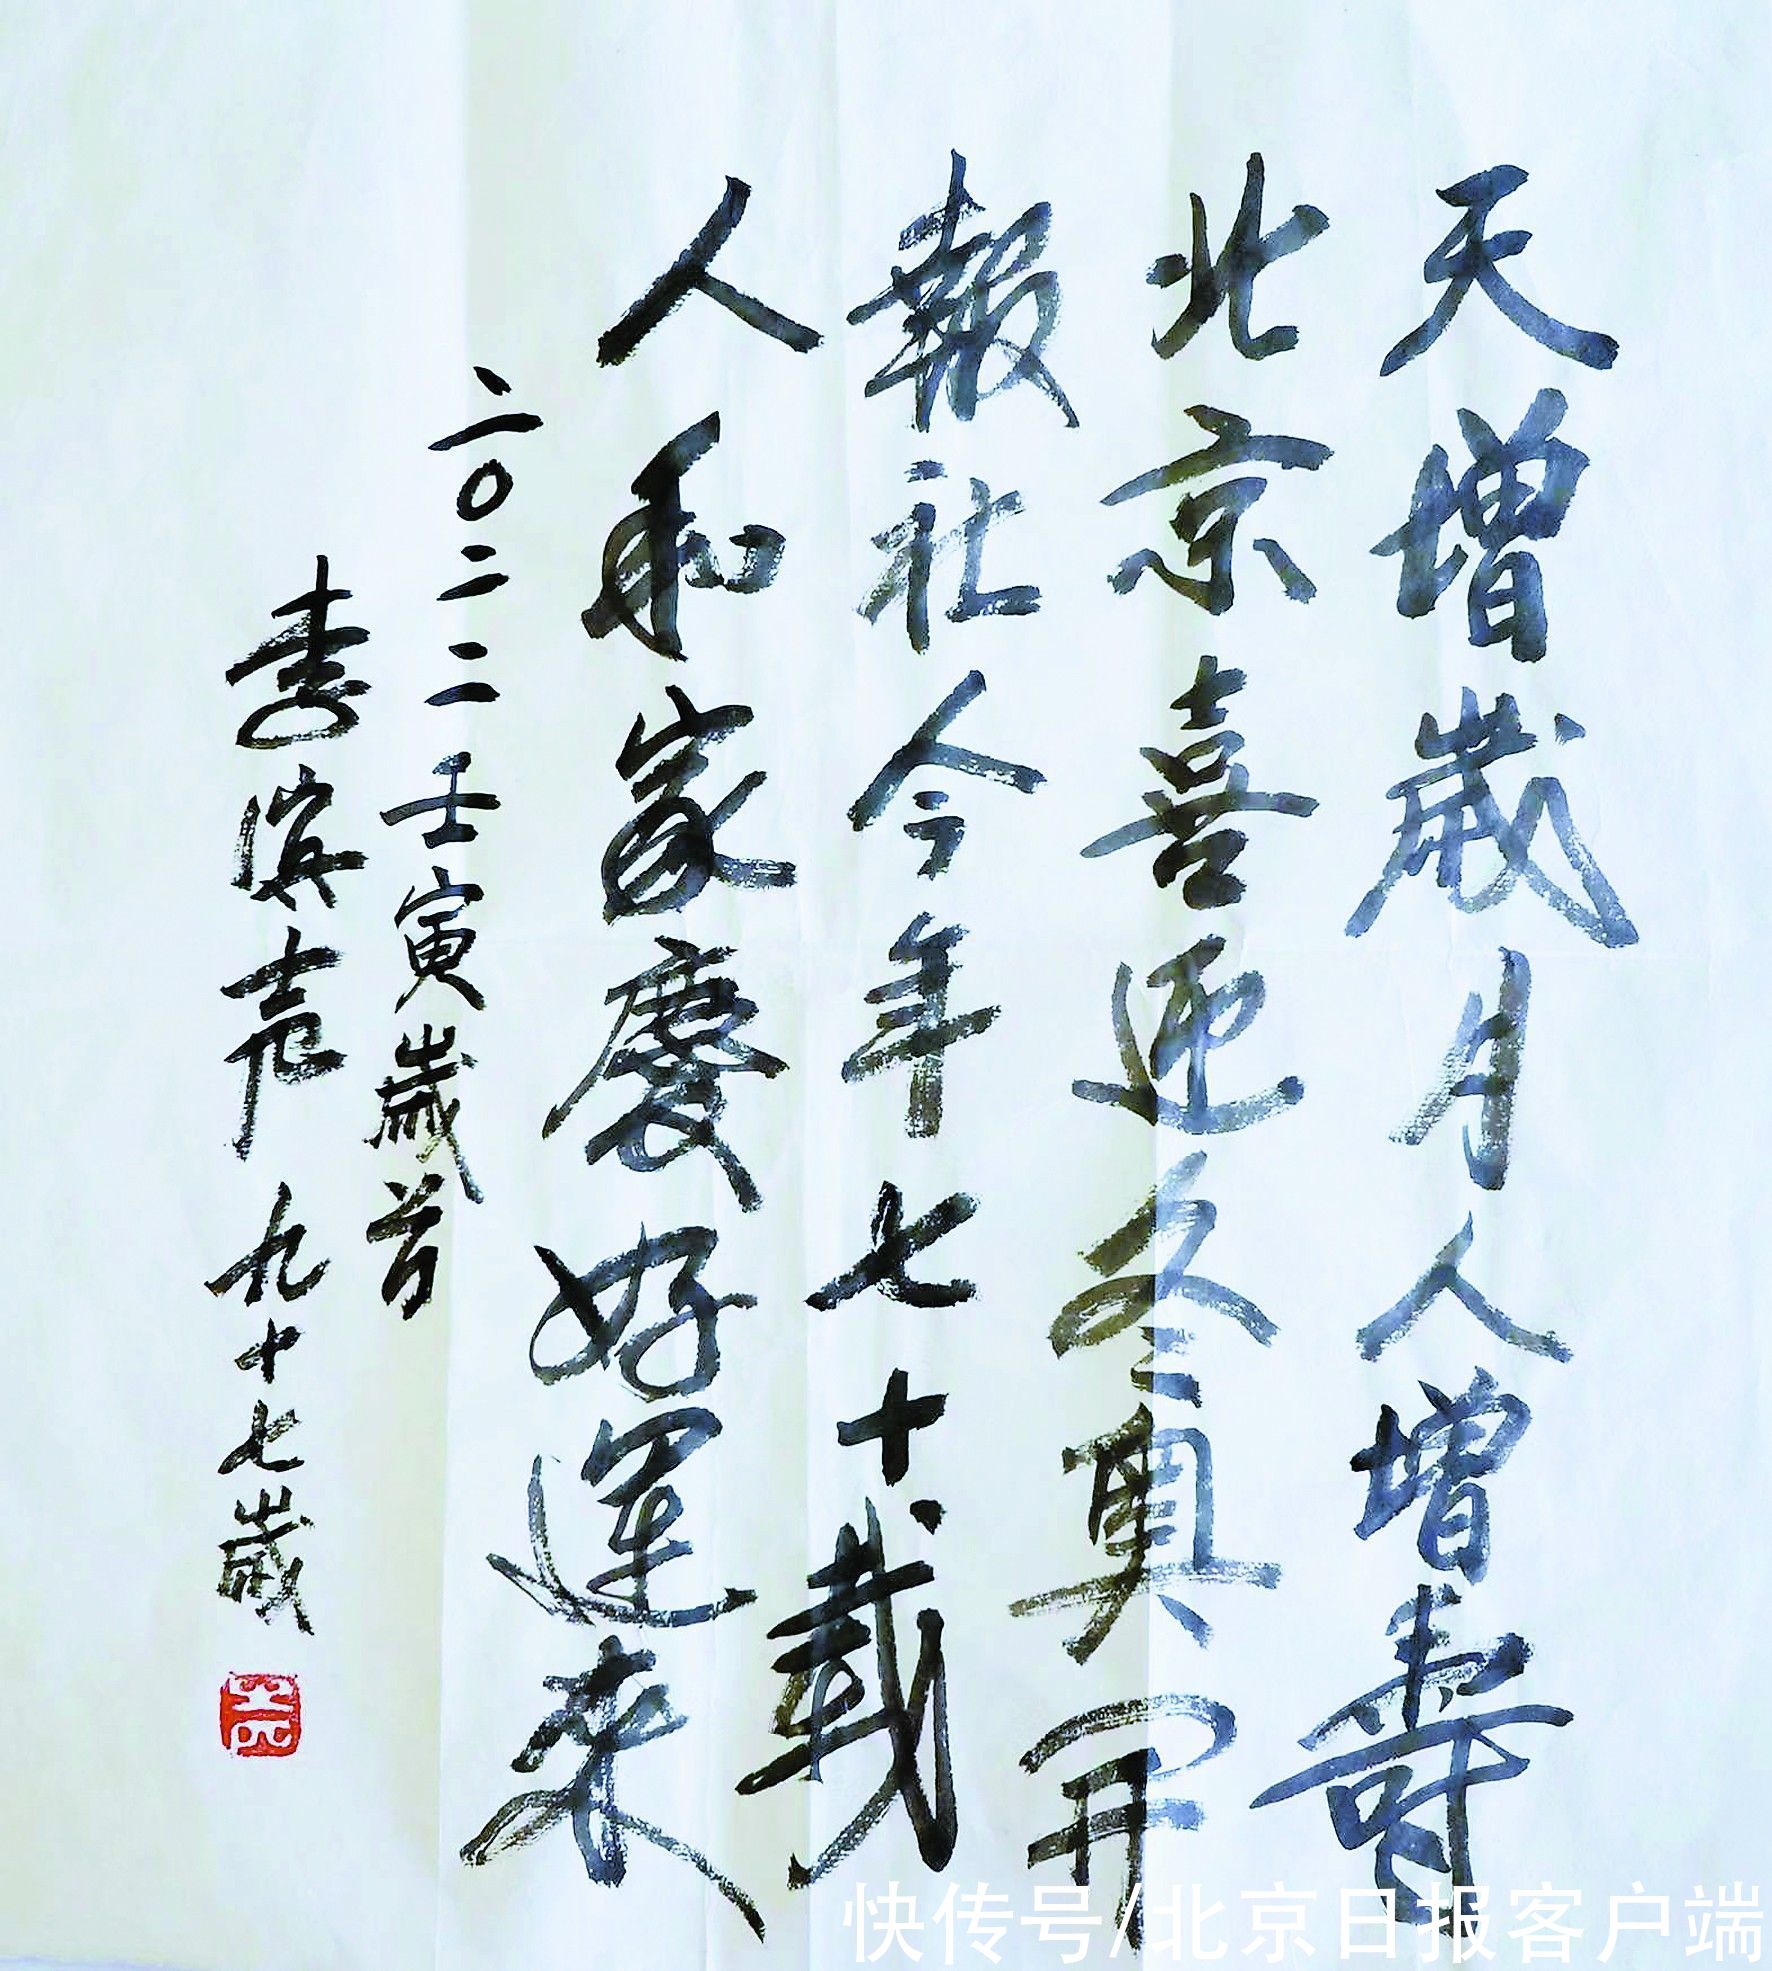 天增歲月人增壽
北京喜迎冬奧開
報社今年七十載
人和家慶好運來
二〇二二壬寅歲首
李滨声九十七歲
快传号/北京日报客户端